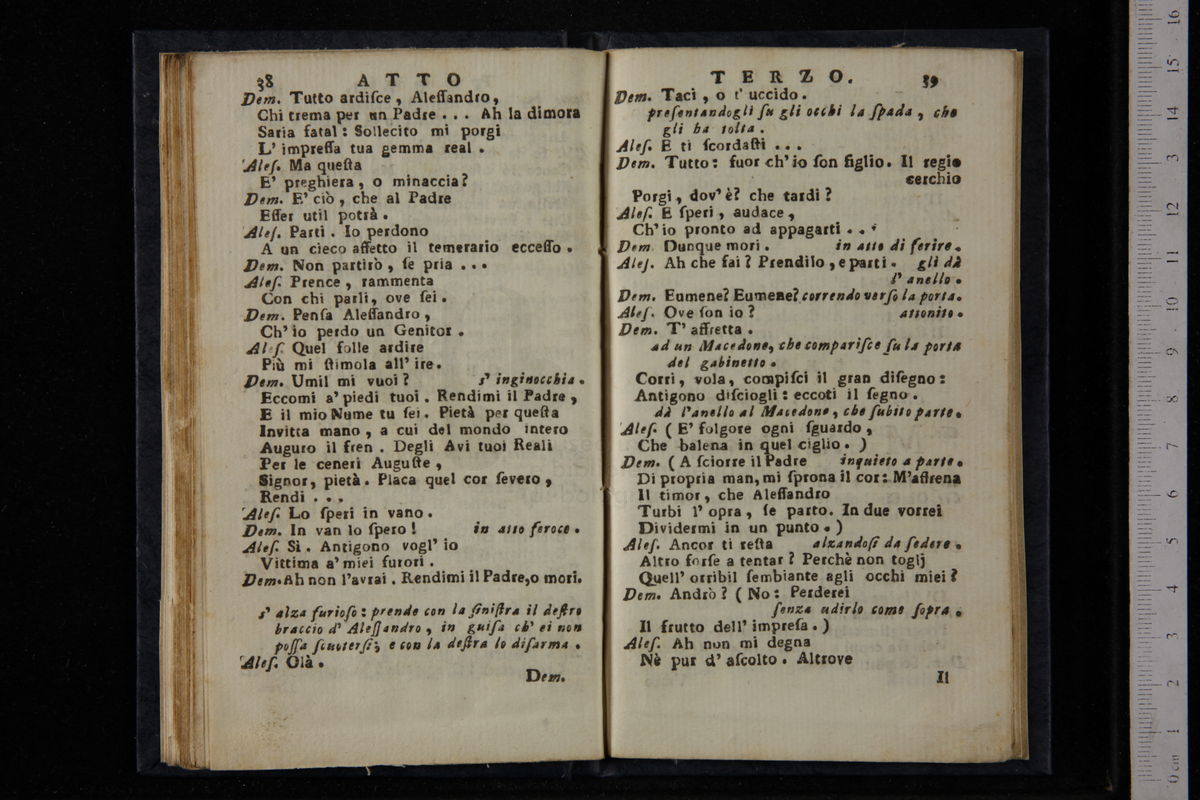 38 ATTO
Dem. Tutto ardiſce, Aleſſandro,
Chi trema per un Padre . . . Ah la dimora
Saria fatal: Sollecito mi porgi
L' impreſſa tua gemma real .
Aleſ. Ma queſta
E' preghiera, o minaccia?
Dem. E' ciò, che al Padre
Eſſer util potrà .
Aleſ. Parti . Io perdono
A un cieco affetto il temerario ecceſſo .
Dem. Non partirò, ſe pria . . .
Aleſ. Prence, rammenta
Con chi parli, ove ſei .
Dem. Penſa Aleſſandro,
Ch' io perdo un Genitor .
Aleſ. Quel folle ardire
Più mi ſtimola all' ire.
Dem. Umil mi vuoi? s' inginocchia .
Eccomi a' piedi tuoi . Rendimi il Padre,
E il mio Nume tu ſei . Pietà per queſta
Invitta mano, a cui del mondo intero
Auguro il fren . Degli Avi tuoi Reali
Per le ceneri Auguſte,
Signor, pietà. Placa quel cor ſevero,
Rendi . . .
Aleſ. Lo ſperi in vano.
Dem. In van lo ſpero! in atto feroce .
Aleſ. Sì. Antigono vogl' io
Vittima a' miei furori .
Dem. Ah non l'avrai. Rendimi il Padre, o mori.
s' alza furioſo: prende con la ſiniſtra il deſtro
braccio d' Aleſſandro, in guiſa ch' ei non
poſſa ſcuoterſi; e con la deſtra lo diſarma .
Aleſ. Olà .
Dem.
TERZO. 39
Dem. Taci, o t' uccido .
preſentandogli ſu gli occhi la ſpada, che
gli ha tolta .
Aleſ. E ti ſcordaſti . . .
Dem. Tutto: fuor ch' io ſon figlio. Il regio
cerchio
Porgi, dov' è? che tardi?
Aleſ. E ſperi, audace,
Ch' io pronto ad appagarti . . .
Dem. Dunque mori . in atto di ferire.
Aleſ. Ah che fai? Prendilo, e parti. gli dà
l' anello .
Dem. Eumene? Eumene? correndo verſo la porta.
Aleſ. Ove ſon io? attonito .
Dem. T' affretta .
ad un Macedone, che compariſce ſu la porta
del gabinetto .
Corri, vola, compiſci il gran diſegno:
Antigono diſciogli: eccoti il ſegno .
dà l'anello al Macedone, che ſubito parte.
Aleſ. (E' folgore ogni ſguardo,
Che balena in quel ciglio. )
Dem. (A ſciorre il Padre inquieto a parte.
Di propria man, mi ſprona il cor: M'affrena
Il timor, che Aleſſandro
Turbi l' opra, ſe parto. In due vorrei
Dividermi in un punto. )
Aleſ. Ancor ti reſta alzandoſi da ſedere .
Altro forſe a tentar? Perchè non toglj
Quell' orribil ſembiante agli occhi miei?
Dem. Andrò? (No: Perderei
ſenza udirlo come ſopra .
Il frutto dell' impreſa. )
Aleſ. Ah non mi degna
Nè pur d' aſcolto . Altrove
Il
16
15
14
13
12
11
10
9
8
7
6
5
4
3
2
1
0 cm